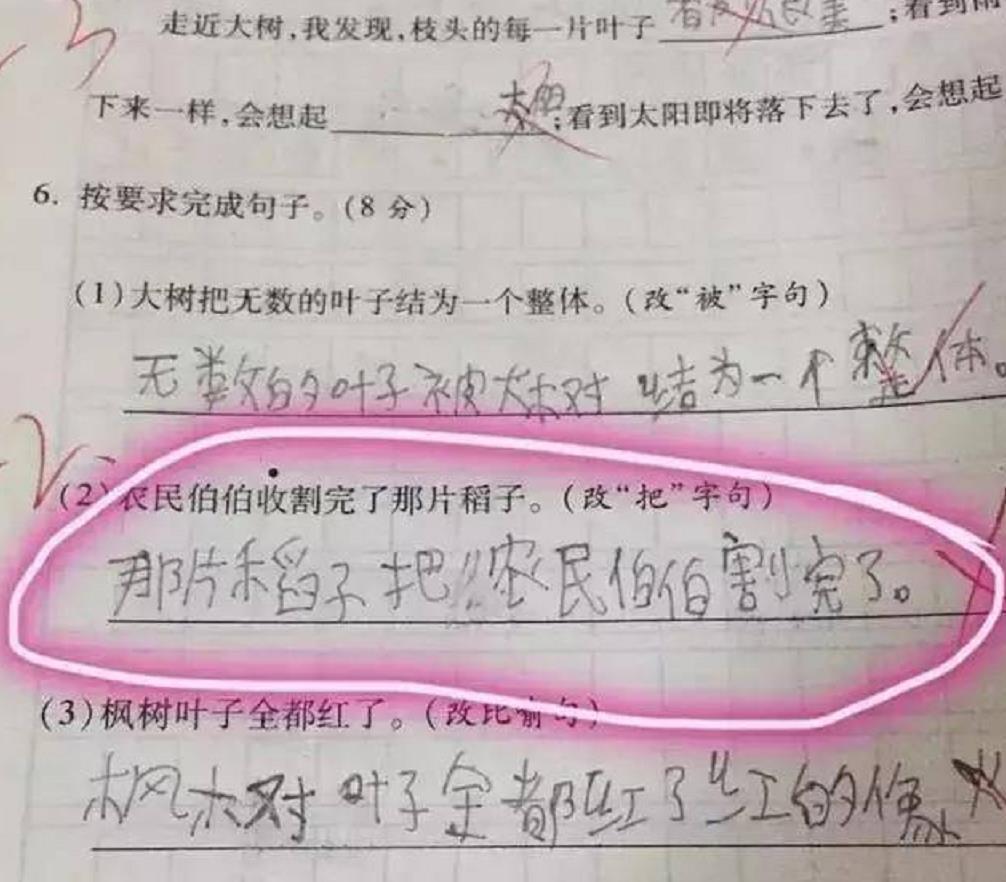 走近大树，我发现，枝头的每一片叶子 ；看到
下来一样，会想起 ；看到太阳即将落下去了，会想起
6. 按要求完成句子。（8 分）
（1）大树把无数的叶子结为一个整体。（改“被”字句）
无数的叶子被大树结为一个整体。
（2）农民伯伯收割完了那片稻子。（改“把”字句）
那片稻子把农民伯伯割完了。
（3）枫树叶子全都红了。（改比喻句）
枫树叶子全都红了红的像